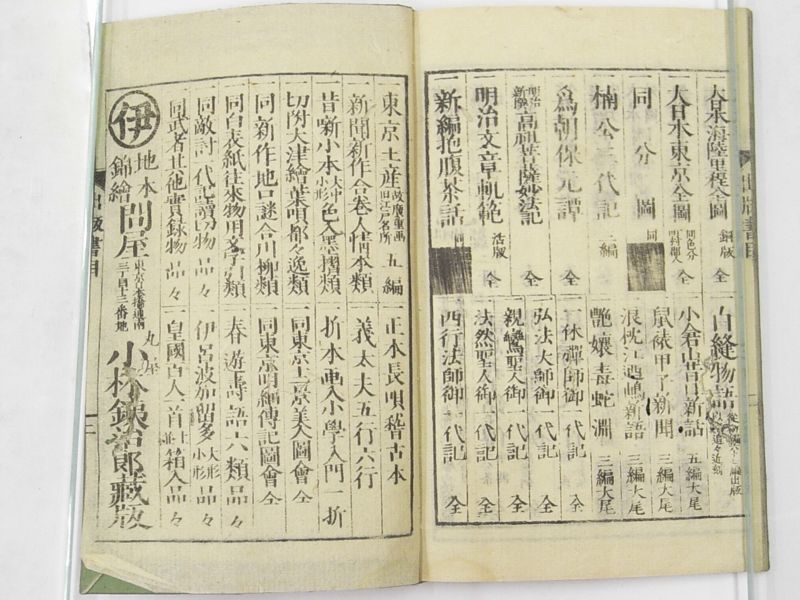 大日本海陸里程全圖 銅版 全
大日本東京全圖 同色分 全
同分圖 同
楠公三代記 三編
為朝保元譚 全
明治新撰 高祖菩薩妙法記 全
明治文章軌範 活版 全
新編抱腹茶話
白縫物語
小倉山昔日新話 五編大尾
鼠裱甲子新聞 三編大尾
浪枕江逎嶋新語 三編大尾
艷孃毒蛇淵 三編大尾
一休禪師御一代記 全
弘法大師御一代記 全
親鸞聖人御一代記 全
法然聖人御一代記 全
西行法師御一代記 全
出版書目
東京土産 故廣重画 旧江戸名所 五編
新聞新作合卷人情本類
昔噺小本 大中小形 色入墨摺類
切附大津繪葉唄都々逸類
同新作地口謎合川柳類
同白表紙往來物用文字引類
同敵討一代記讀切物 品々
同武者其他實録物 品々
正本長唄稽古本
義太夫五行六行
折本画入小學入門一折
同東京土京美人圖會 全
同東京明細傳記圖會 全
春遊壽語六類品々
伊呂波加留多 大形小形 品々
皇國百人一首 箱入品々
伊
地本錦繪問屋
東京日本橋通南
三丁目十三番地
丸鉄
小林鉄治郎藏版
出版書目